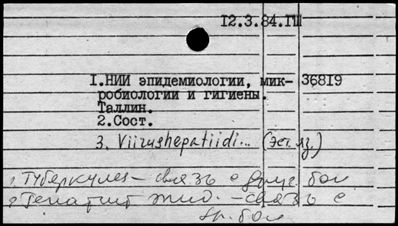 12.3.84.ГШ
1.НИИ эпидемиологии, мик- 36819
робиологии и гигиены.
Таллин.
2.Сост.
3. Viirushepatiidi... (эст.яз.)
1. Туберкулез – связь с друг. бол
2 Гепатит – связь с
др. бол